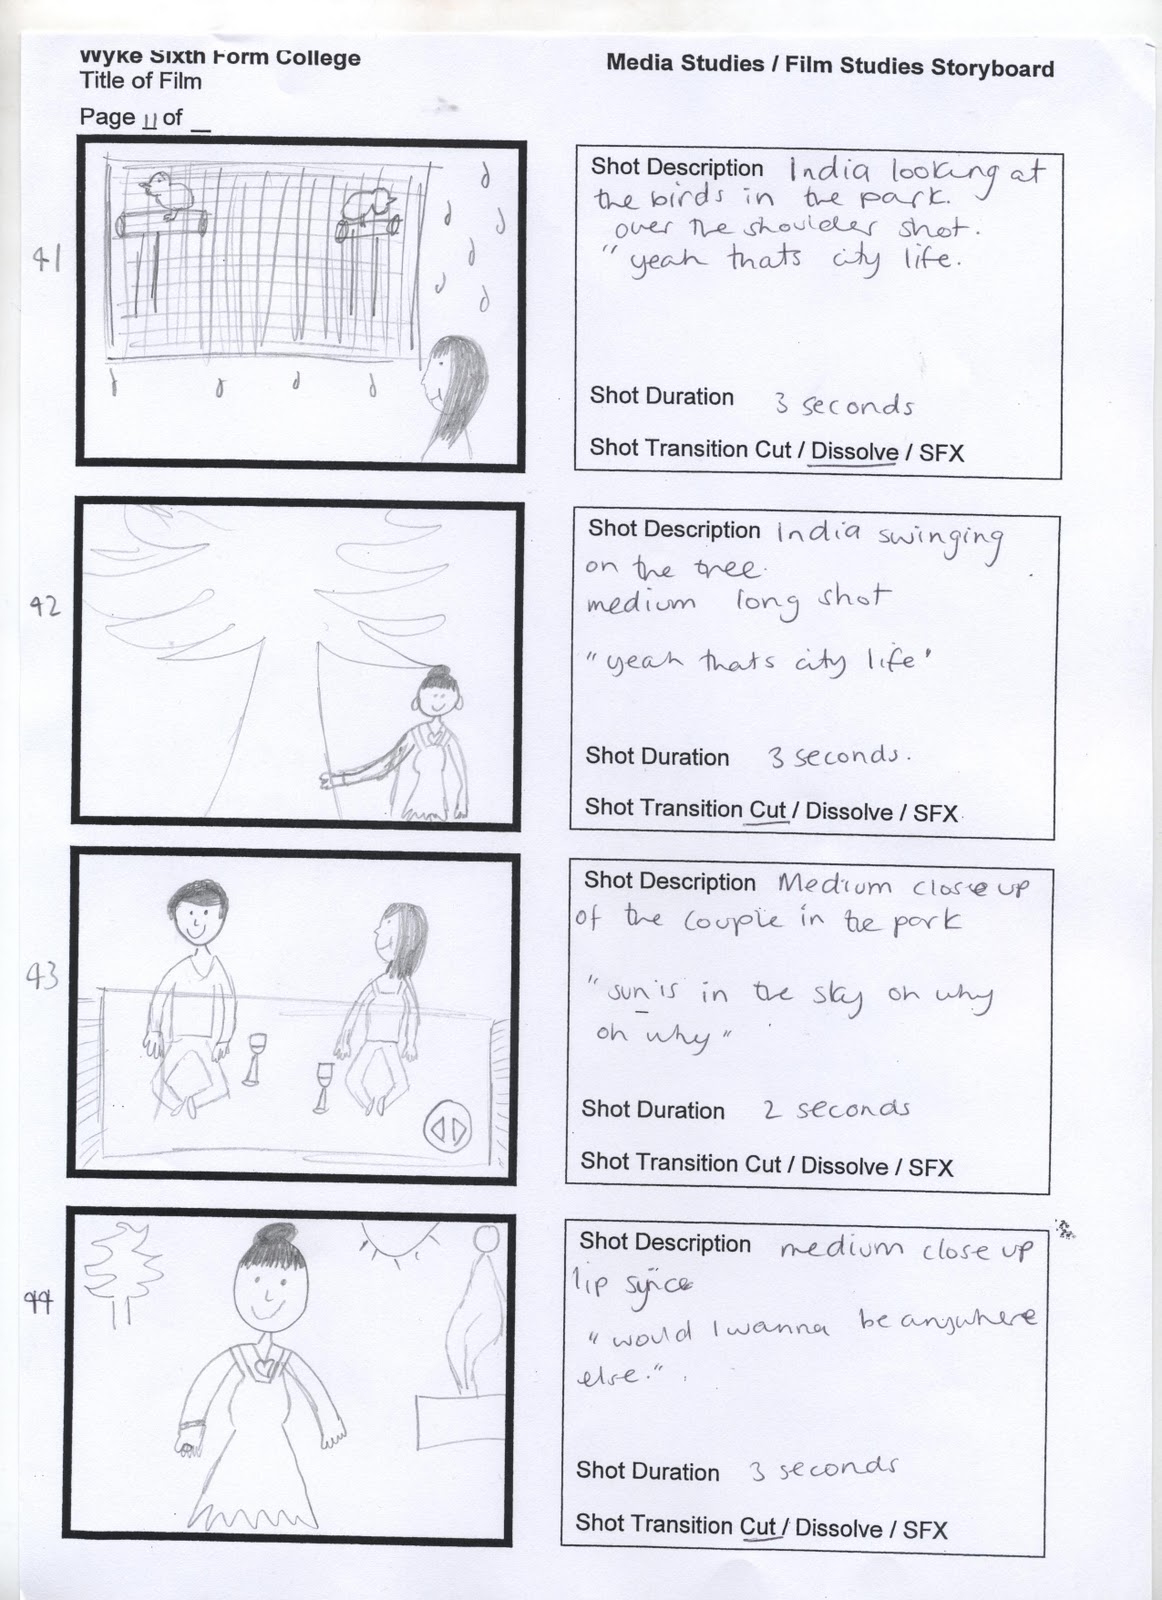 Wyke Sixth Form College
Media Studies / Film Studies Storyboard
Title of Film
Page 11 of __
41
Shot Description India looking at
the birds in the park.
over the shoulder shot.
"yeah thats city life.
Shot Duration 3 seconds
Shot Transition Cut / Dissolve / SFX
42
Shot Description India swinging
on the tree.
medium long shot
"yeah thats city life"
Shot Duration 3 seconds.
Shot Transition Cut / Dissolve / SFX
43
Shot Description Medium close up
of the couple in the park
"sun is in the sky oh why
oh why"
Shot Duration 2 seconds
Shot Transition Cut / Dissolve / SFX
44
Shot Description medium close up
lip sync
"would I wanna be anywhere
else."
Shot Duration 3 seconds
Shot Transition Cut / Dissolve / SFX